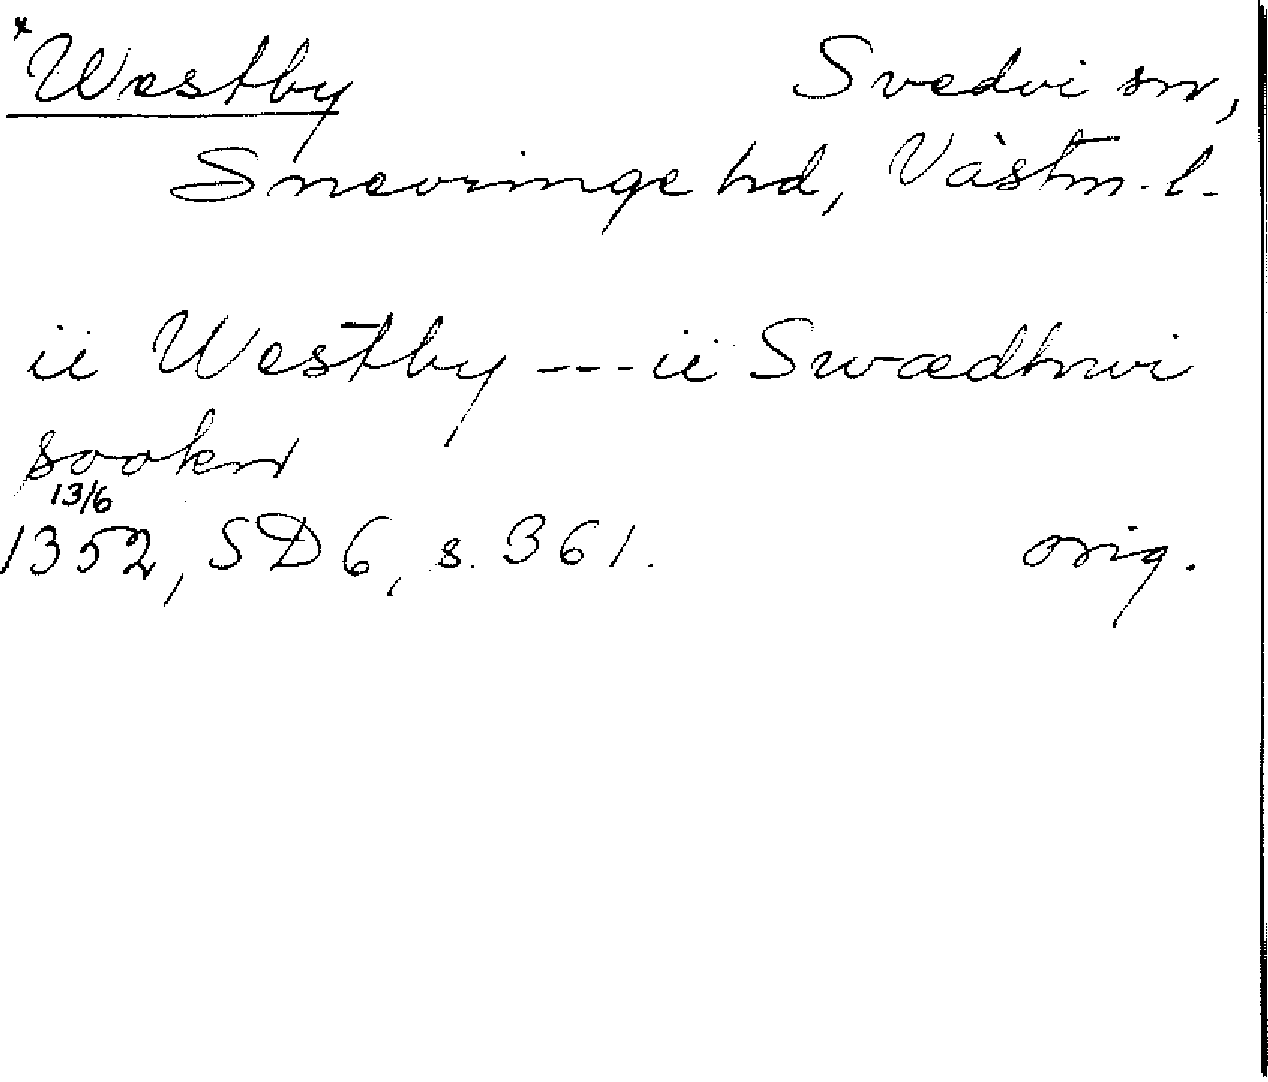 *Westby Svedvi sn,
Snevringe hd, Västm. l.
ii Westby --- ii Swædhwi
sookn
13/6
1352, SD 6, s. 361. orig.